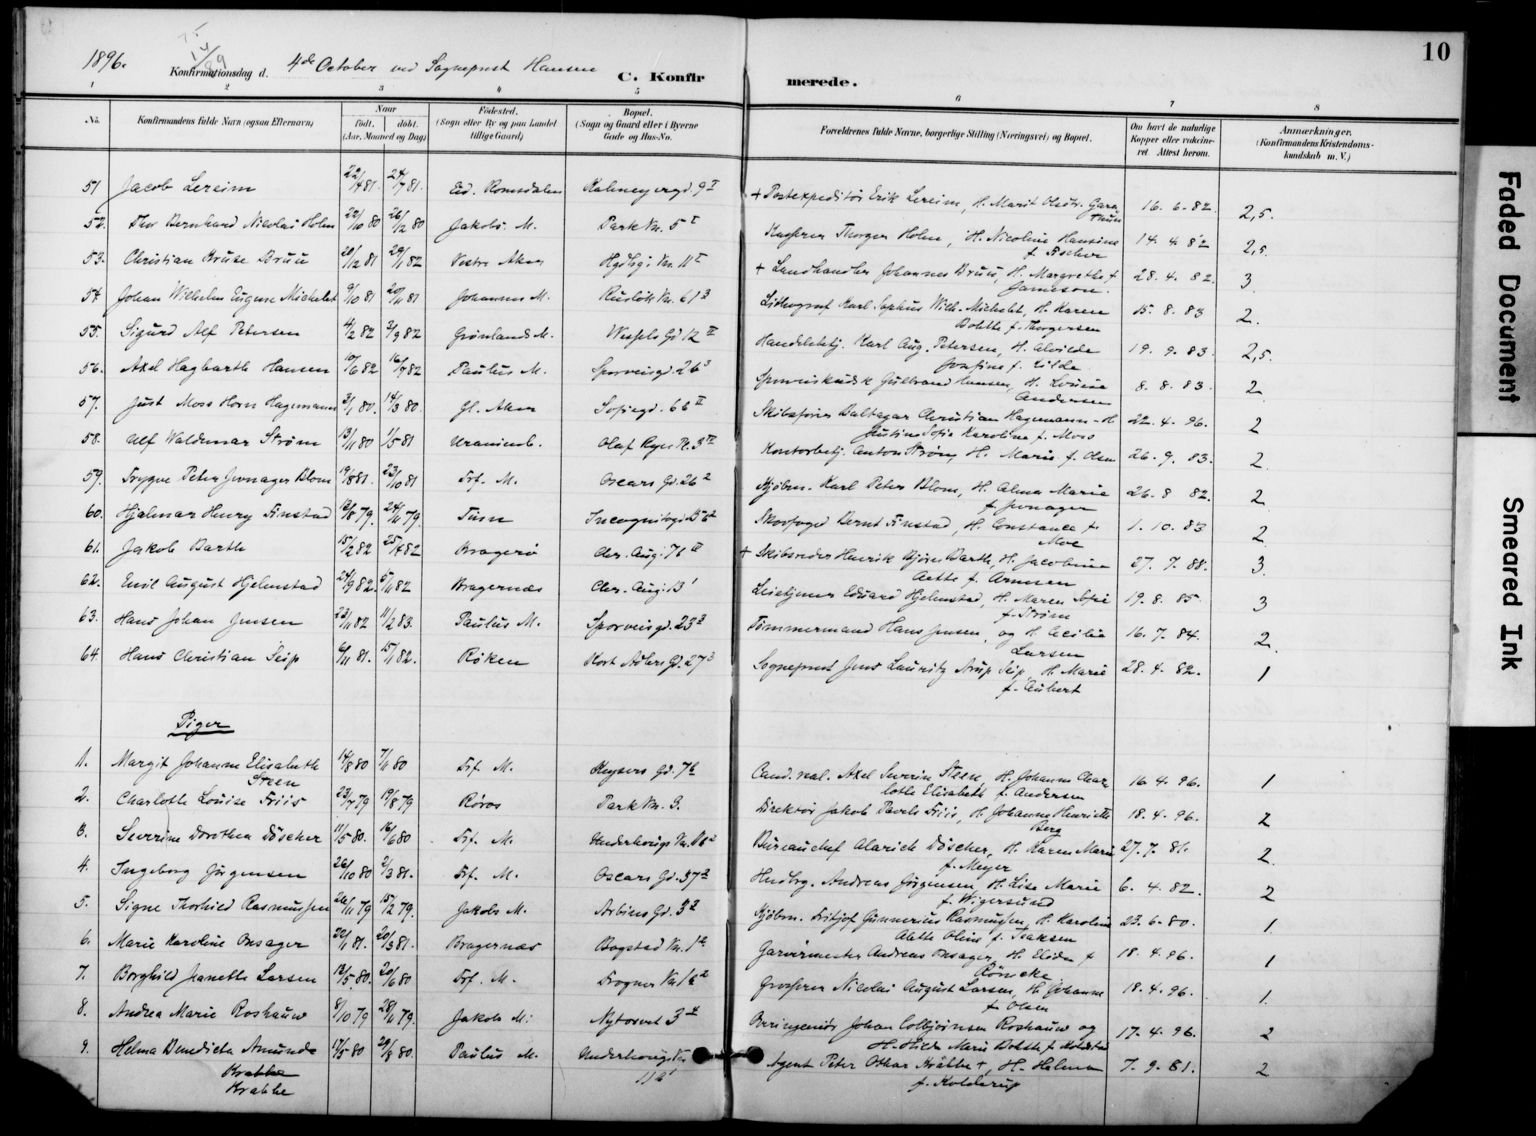 10
1896.
Konfirmationsdag d. 4de October ved Sogneprest Hansen C. Konfirmerede.
1 2 3 4 5 6 7 8
No.
Konfirmandens fulde Navn (ogsaa Efternavn)
Naar
født. døbt.
(Aar, Maaned og Dag)
Fødested.
(Sogn eller By og paa Landet tillige Gaard)
Bopæl.
(Sogn og Gaard eller i Byerne Gade og Hus-No.
Forældrenes fulde Navne, borgerlige Stilling (Næringsvei) og Bopæl.
Om havt de naturlige Kopper eller vakcineret. Attest herom.
Anmærkninger.
(Konfirmandens Kristendomskundskab m. V.)
51 Jacob Lereim 24/7 81. Romsdalen + Postexpeditør Erik Lereim, H. Marit 16. 6. 82. 2,5.
52. Thor Bernhard Nicolai Holm 22/10 80 26/12 80 Jakobs M. Parkv. 5 I Kasserer Thorger Holm, H. Nicoline Hansine f. Fischer 14. 4. 82 2,5.
53. Christian Kruse Bruu 20/12 81 29/1 82 Vestre Aker + Landhandler Johannes Bruu, H. Margrethe f. Jameson. 28. 4. 82. 3
54. Johan Wilhelm Eugene Michelet 9/10 81 20/11 81 Johannes M. Ruseløk V. 61 3 Lithograf Karl Sophus Wilh. Michelet, H. Karen Bolette f. Thorgersen 15. 8. 83 2.
55. Sigurd Alf Petersen 4/2 82 3/9 82 Grønlands M. Wessels Gd 12 II Handelsbetj. Karl Aug. Petersen, H. Alvilde Josefine f. Lilde 19. 9. 83. 2,5.
56. Axel Hagbarth Hansen 10/6 82 16/9 82 Paulus M. Sporveisgd. 26 3 Sporveiskudsk Gulbrand Hansen, H. Lovise Andersen 8. 8. 83. 2
57. Just Moss Horn Hagemann 3/1 80. 14/3 80. Gl. Aker Sofiegd. 66 II Skibsfører Baltazar Christian Hagemann - H. Justine Sofie Karoline f. Moss 22. 4. 96. 2
58. Ulf Waldemar Strøm 13/11 80 1/5 81 Uranienb. Olaf Ryes Pl. 3 IV Kontorbetj. Anton Strøm, H. Marie f. Olsen 26. 9. 83. 2.
59. Trygve Peter Blom 19/8 81. 23/10 81 Trf. M. Oscars Gd. 26 2 Kjøbm. Karl Peter Blom, H. Alma Marie 26. 8 82. 2
60. Hjalmar Henry Finstad 12/8 79. 24/11 79. Incognitogd. Skovfoged Bernt Finstad, H. Constance f. Moe 1. 10. 83 2
61. Jakob Barth 15/2 82 25/4 82 Kragerø Chr. Aug. 7 + Skibsreder Henrik Bjørn Barth, H. Jacobine Aette f. Arnesen 27. 7. 88. 3.
62. Emil August Hjelmstad 24/9 82. 5/11 82 Bragernæs Chr. Aug. 13 1 Edvard Hjelmstad, H. Maren Sofie f. Strøm 19. 8. 85. 3
63. Hans Johan Jensen 23/11 82 11/2 83. Paulus M. Sporveisgd. 23 3 Tømmermand Hans Jensen, og H. Cecilie Larsen 16. 7. 84. 2.
64. Hans Christian Seip 6/11 81. 15/1 82. Røken Kort Adlers Gd. 27 3 Sogneprest Jens Lauritz Arup Seip, H. Marie f. Aubert 28. 4. 82. 1
Piger
1. Margit Johanne Elisabeth Steen 14/8 80 7/11 80 Trf. M. Keysers Gd. 7 Cand. real. Axel Severin Steen, H. Johanne Charlotte Elisabeth f. Andersen 16. 4. 96. 1
2. Charlotte Louise Friis 23/7 79 19/8 79 Røros Parkv. 3. Direktør Jakob Pavels Friis, H. Johanne Henriette Berg 18. 4. 96. 2
3. Severine Dorothea Döscher 11/5 80. 16/6 80 Trf. M. Underhaugs V. Bureauchef Alarick Döscher, H. Karen Marie f. Meyer 27. 7. 81. 2.
4. Ingeborg Jørgensen 26/10 80 2/3 81. Trf. M. Oscars Gd. 37 3 Hndlrg. Andreas Jørgensen, H. Lise Marie f. Wigersund 6. 4. 82. 2
5. Signe Thorhild Rasmussen 26/11 79 15/12 79. Jakobs M. Arbins Gd. 3 Kjøbm. Fritjof Gunnerius Rasmussen, H. Karoline Alette Oline f. Isaksen 23. 6. 80. 1.
6. Marie Karoline Onsager 22/1 81. 20/3 81. Bragernæs Bogstad V. 1 Garvermester Andreas Onsager, H. Elida f. Röncke 18. 4. 96. 1
7. Borghild Jeanette Larsen 13/5 80. 20/6 80 Trf. M. Frogner V. Grosserer Nicolai August Larsen, H. Johanne f. Olsen 18. 4. 96. 1.
8. Andrea Marie Roshauw 8/10 79 28/11 79. Jakobs M. Nytorvet 3 Johan Colbjørnsen Roshauw og H. Hilda Marie Bolette 17. 4. 96. 2
9. Helma Benedicta Amunda Krabbe Krabbe 17/5 80 29/8 80. Paulus M. Underhaugs V. Agent Peter Othar Krabbe +, H. Helma f. Kolderup 7. 9. 81. 2
Faded Document
Smeared Ink